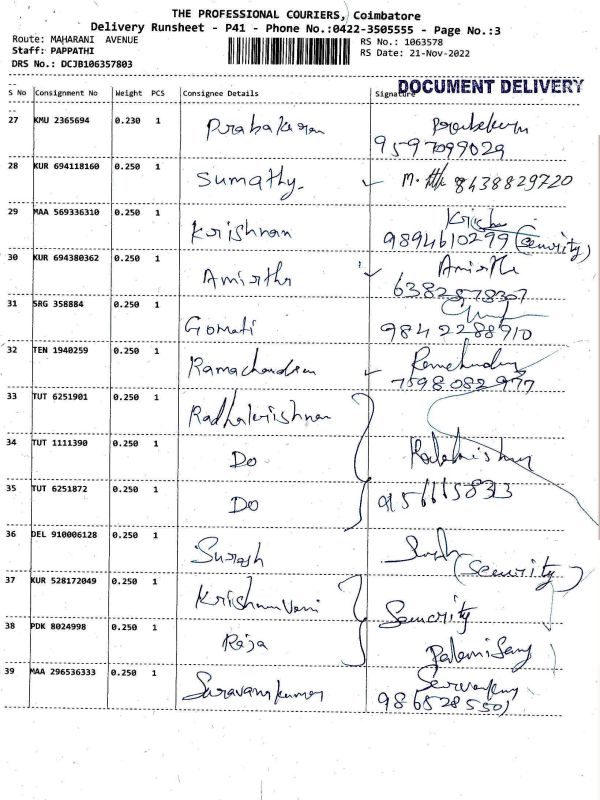 THE PROFESSIONAL COURIERS, Coimbatore
Delivery Runsheet - P41 - Phone No.:0422-3505555 - Page No.:3
Route: MAHARANI AVENUE
RS No.: 1063578
Staff: PAPPATHI
RS Date: 21-Nov-2022
DRS No.: DCJB106357803
DOCUMENT DELIVERY
S No Consignment No Weight PCS Consignee Details Signature
27 KMU 2365694 0.230 1 Prabakaran
9597099029
28 KUR 694118160 0.250 1 Sumathy. 8438829720
29 MAA 569336310 0.250 1 Krishnan
9894610299 (Security)
30 KUR 694380362 0.250 1 Amirtha
6382578307
31 SRG 358884 0.250 1 Gomati
9842288910
32 TEN 1940259 0.250 1 Ramachandran
7598082977
33 TUT 6251901 0.250 1 Radhakrishnan
34 TUT 1111390 0.250 1 Do
35 TUT 6251872 0.250 1 Do
36 DEL 910006128 0.250 1 Suresh
(Security)
37 KUR 528172049 0.250 1 Krishnaveni
38 PDK 8024998 0.250 1 Raja
39 MAA 296536333 0.250 1 Saravanakumar
9865285501